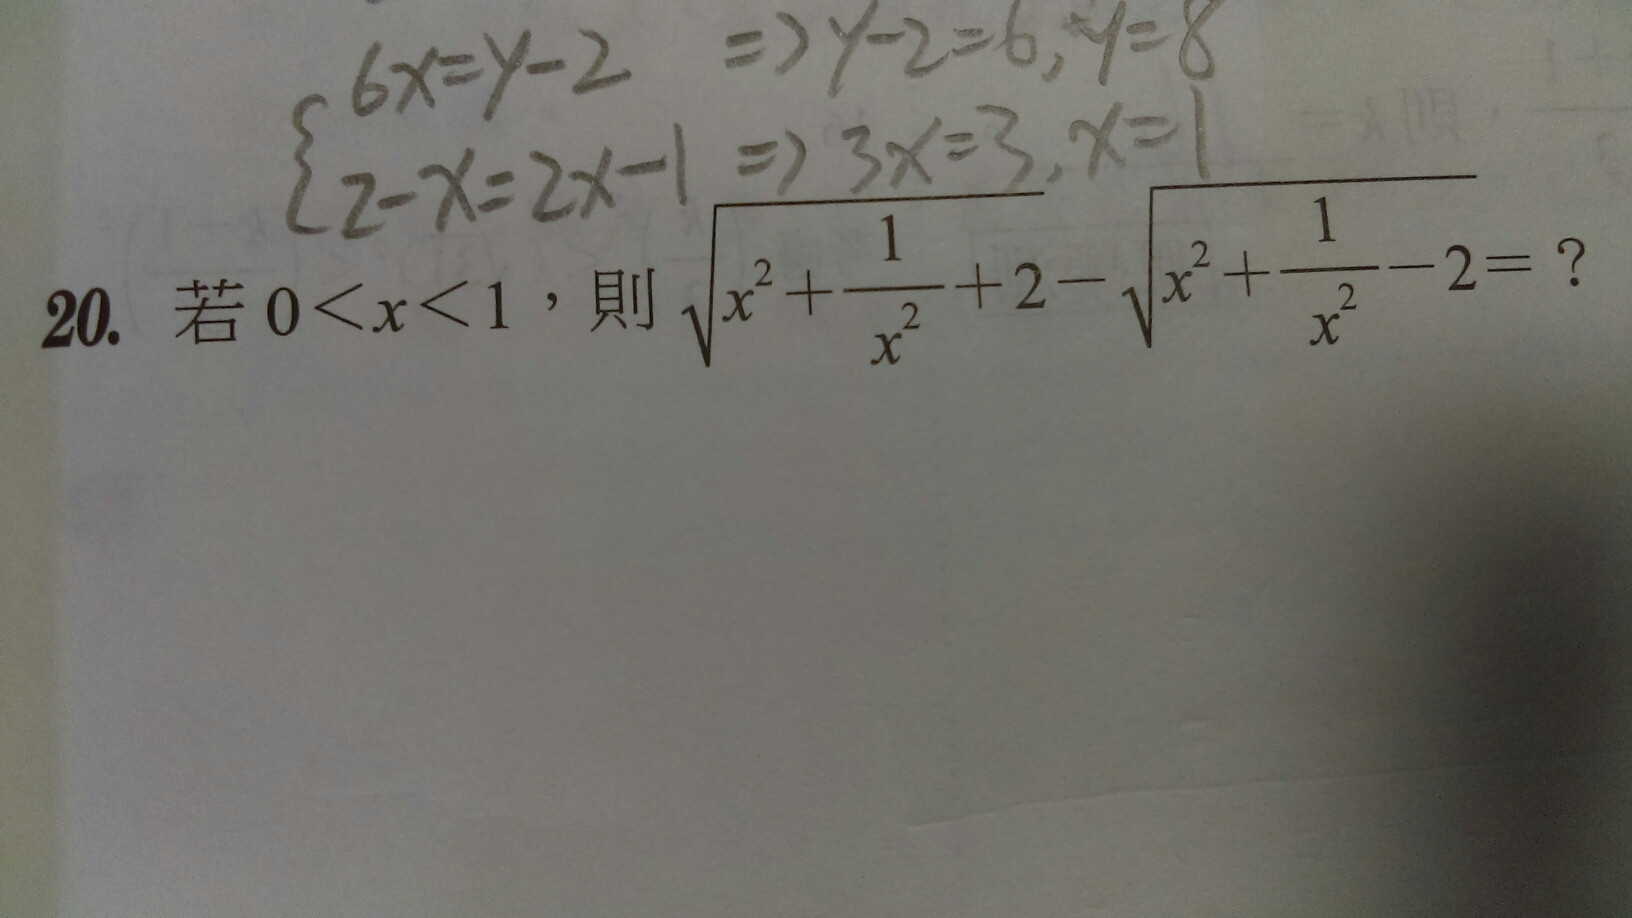 6x=y-2 => y-2=6, y=8
2-x=2x-1 => 3x=3, x=1
20. 若 0<x<1，則 √(x²+1/x²+2) - √(x²+1/x²-2) = ?